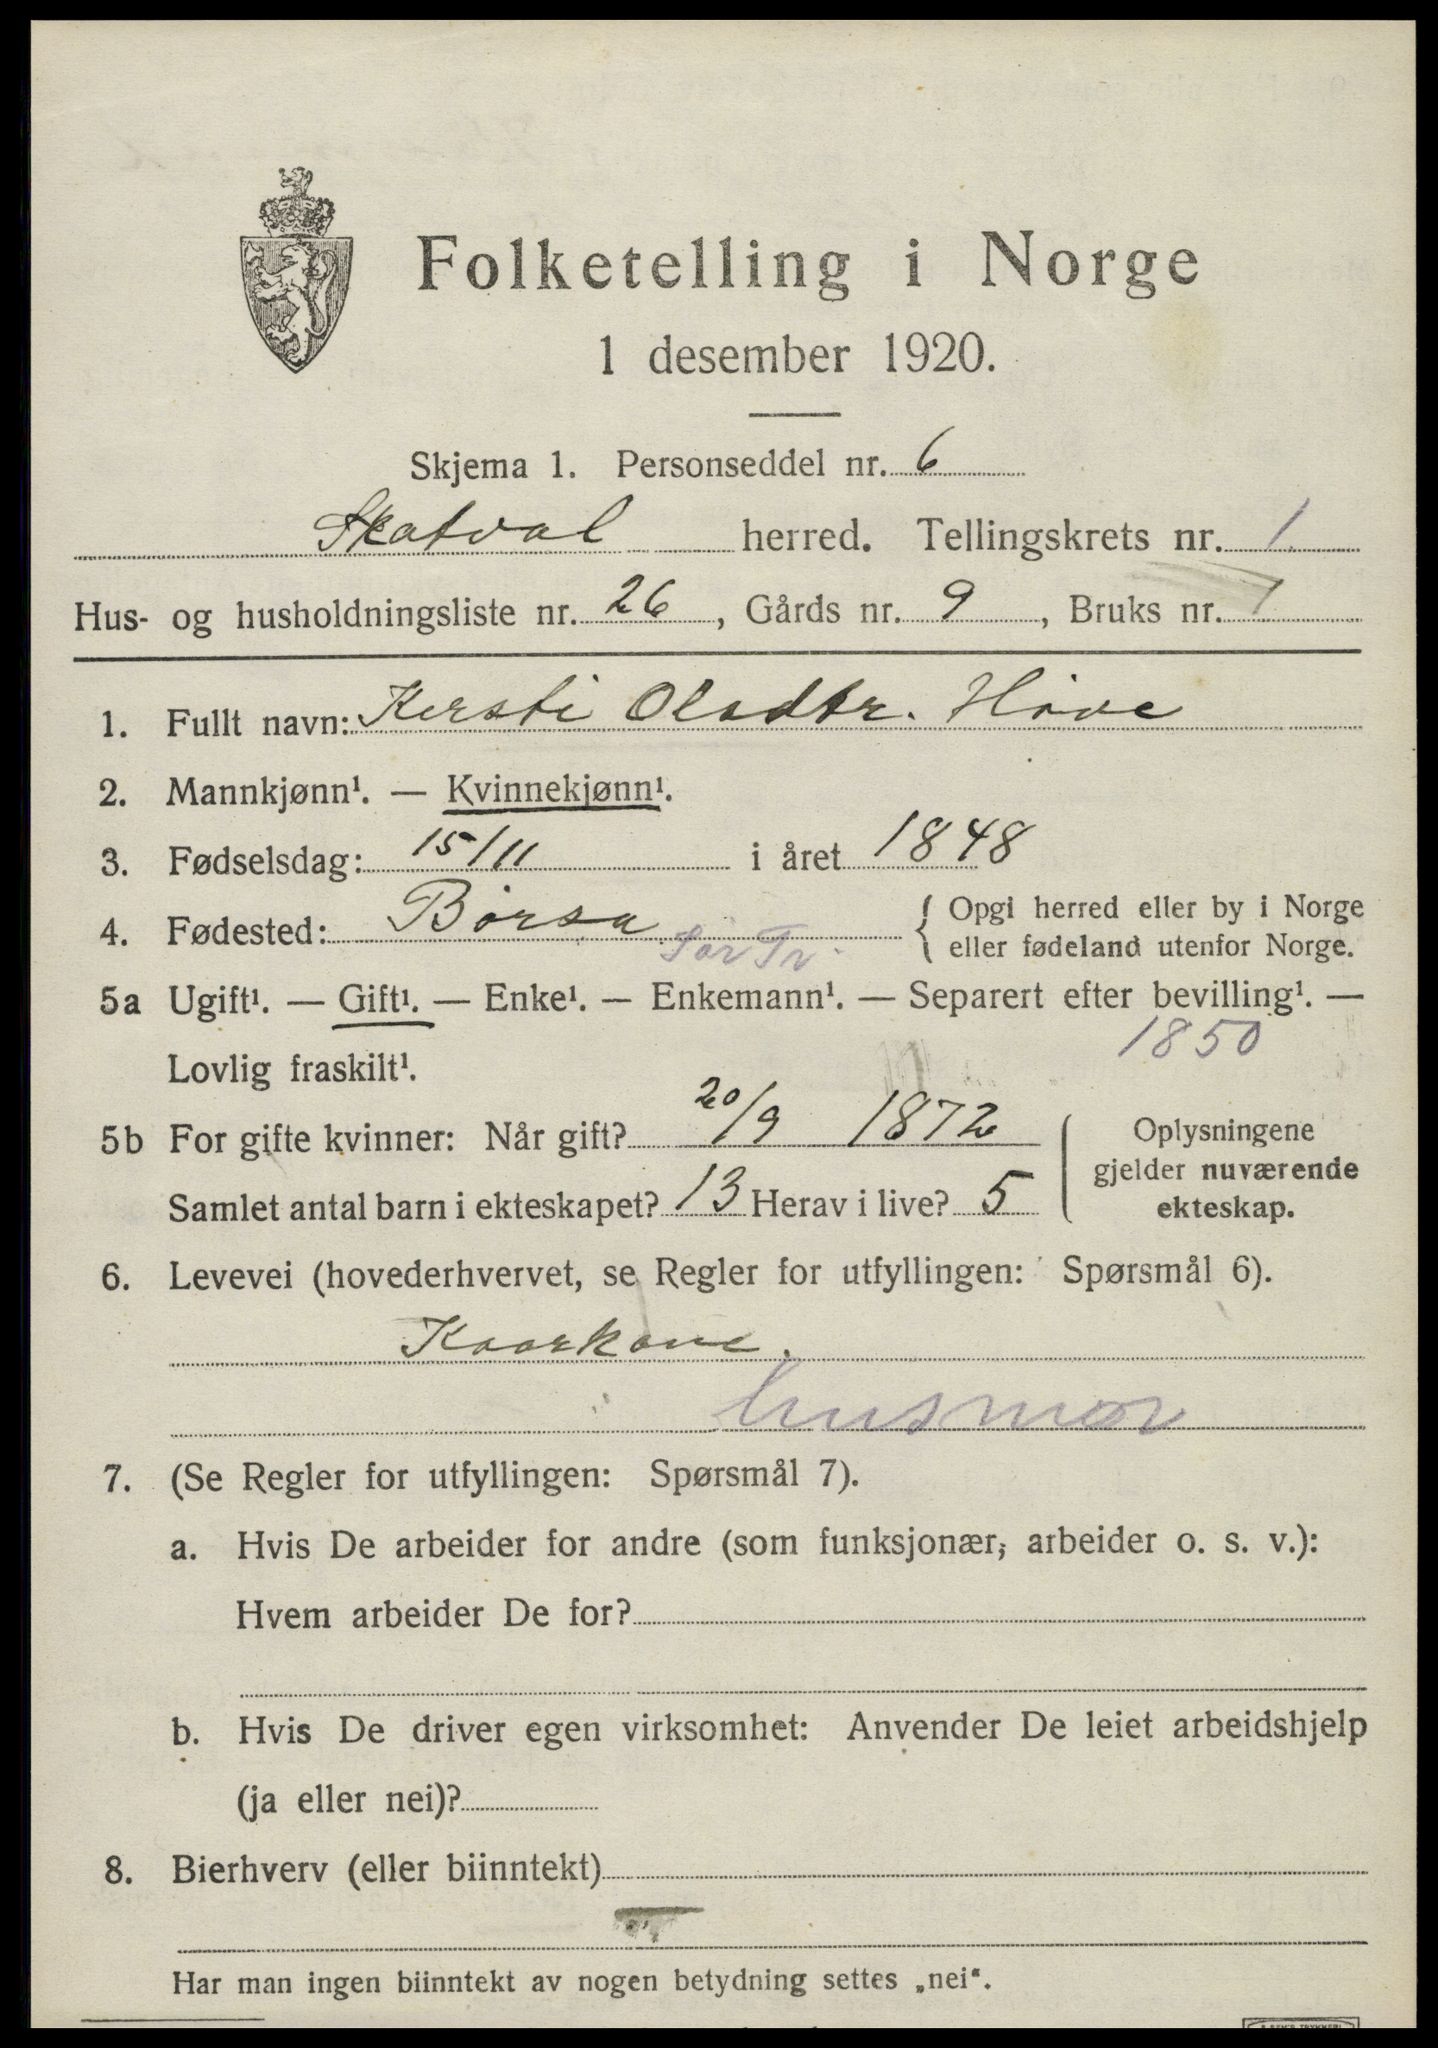 Folketelling i Norge
1 desember 1920.
Skjema 1. Personseddel nr. 6
Skatval herred. Tellingskrets nr. 1.
Hus- og husholdningsliste nr. 26, Gårds nr. 9, Bruks nr. 1
1. Fullt navn: Kersti Olsdtr. Höve
2. Mannkjønn¹. — Kvinnekjønn¹.
3. Fødselsdag: 15/11 i året 1848
4. Fødested: Börsa Sør Tr. { Opgi herred eller by i Norge
eller fødeland utenfor Norge.
5a Ugift¹. — Gift¹. — Enke¹. — Enkemann¹. — Separert efter bevilling¹. —
Lovlig fraskilt¹. 1850
5b For gifte kvinner: Når gift? 20/9 1872 Oplysningene
gjelder nuværende
Samlet antal barn i ekteskapet? 13 Herav i live? 5 ekteskap.
6. Levevei (hovederhvervet, se Regler for utfyllingen: Spørsmål 6).
Kaarkone.
husmor
7. (Se Regler for utfyllingen: Spørsmål 7).
a. Hvis De arbeider for andre (som funksjonær, arbeider o. s. v.):
Hvem arbeider De for?
b. Hvis De driver egen virksomhet: Anvender De leiet arbeidshjelp
(ja eller nei)?
8. Bierhverv (eller biinntekt)
Har man ingen biinntekt av nogen betydning settes „nei“.